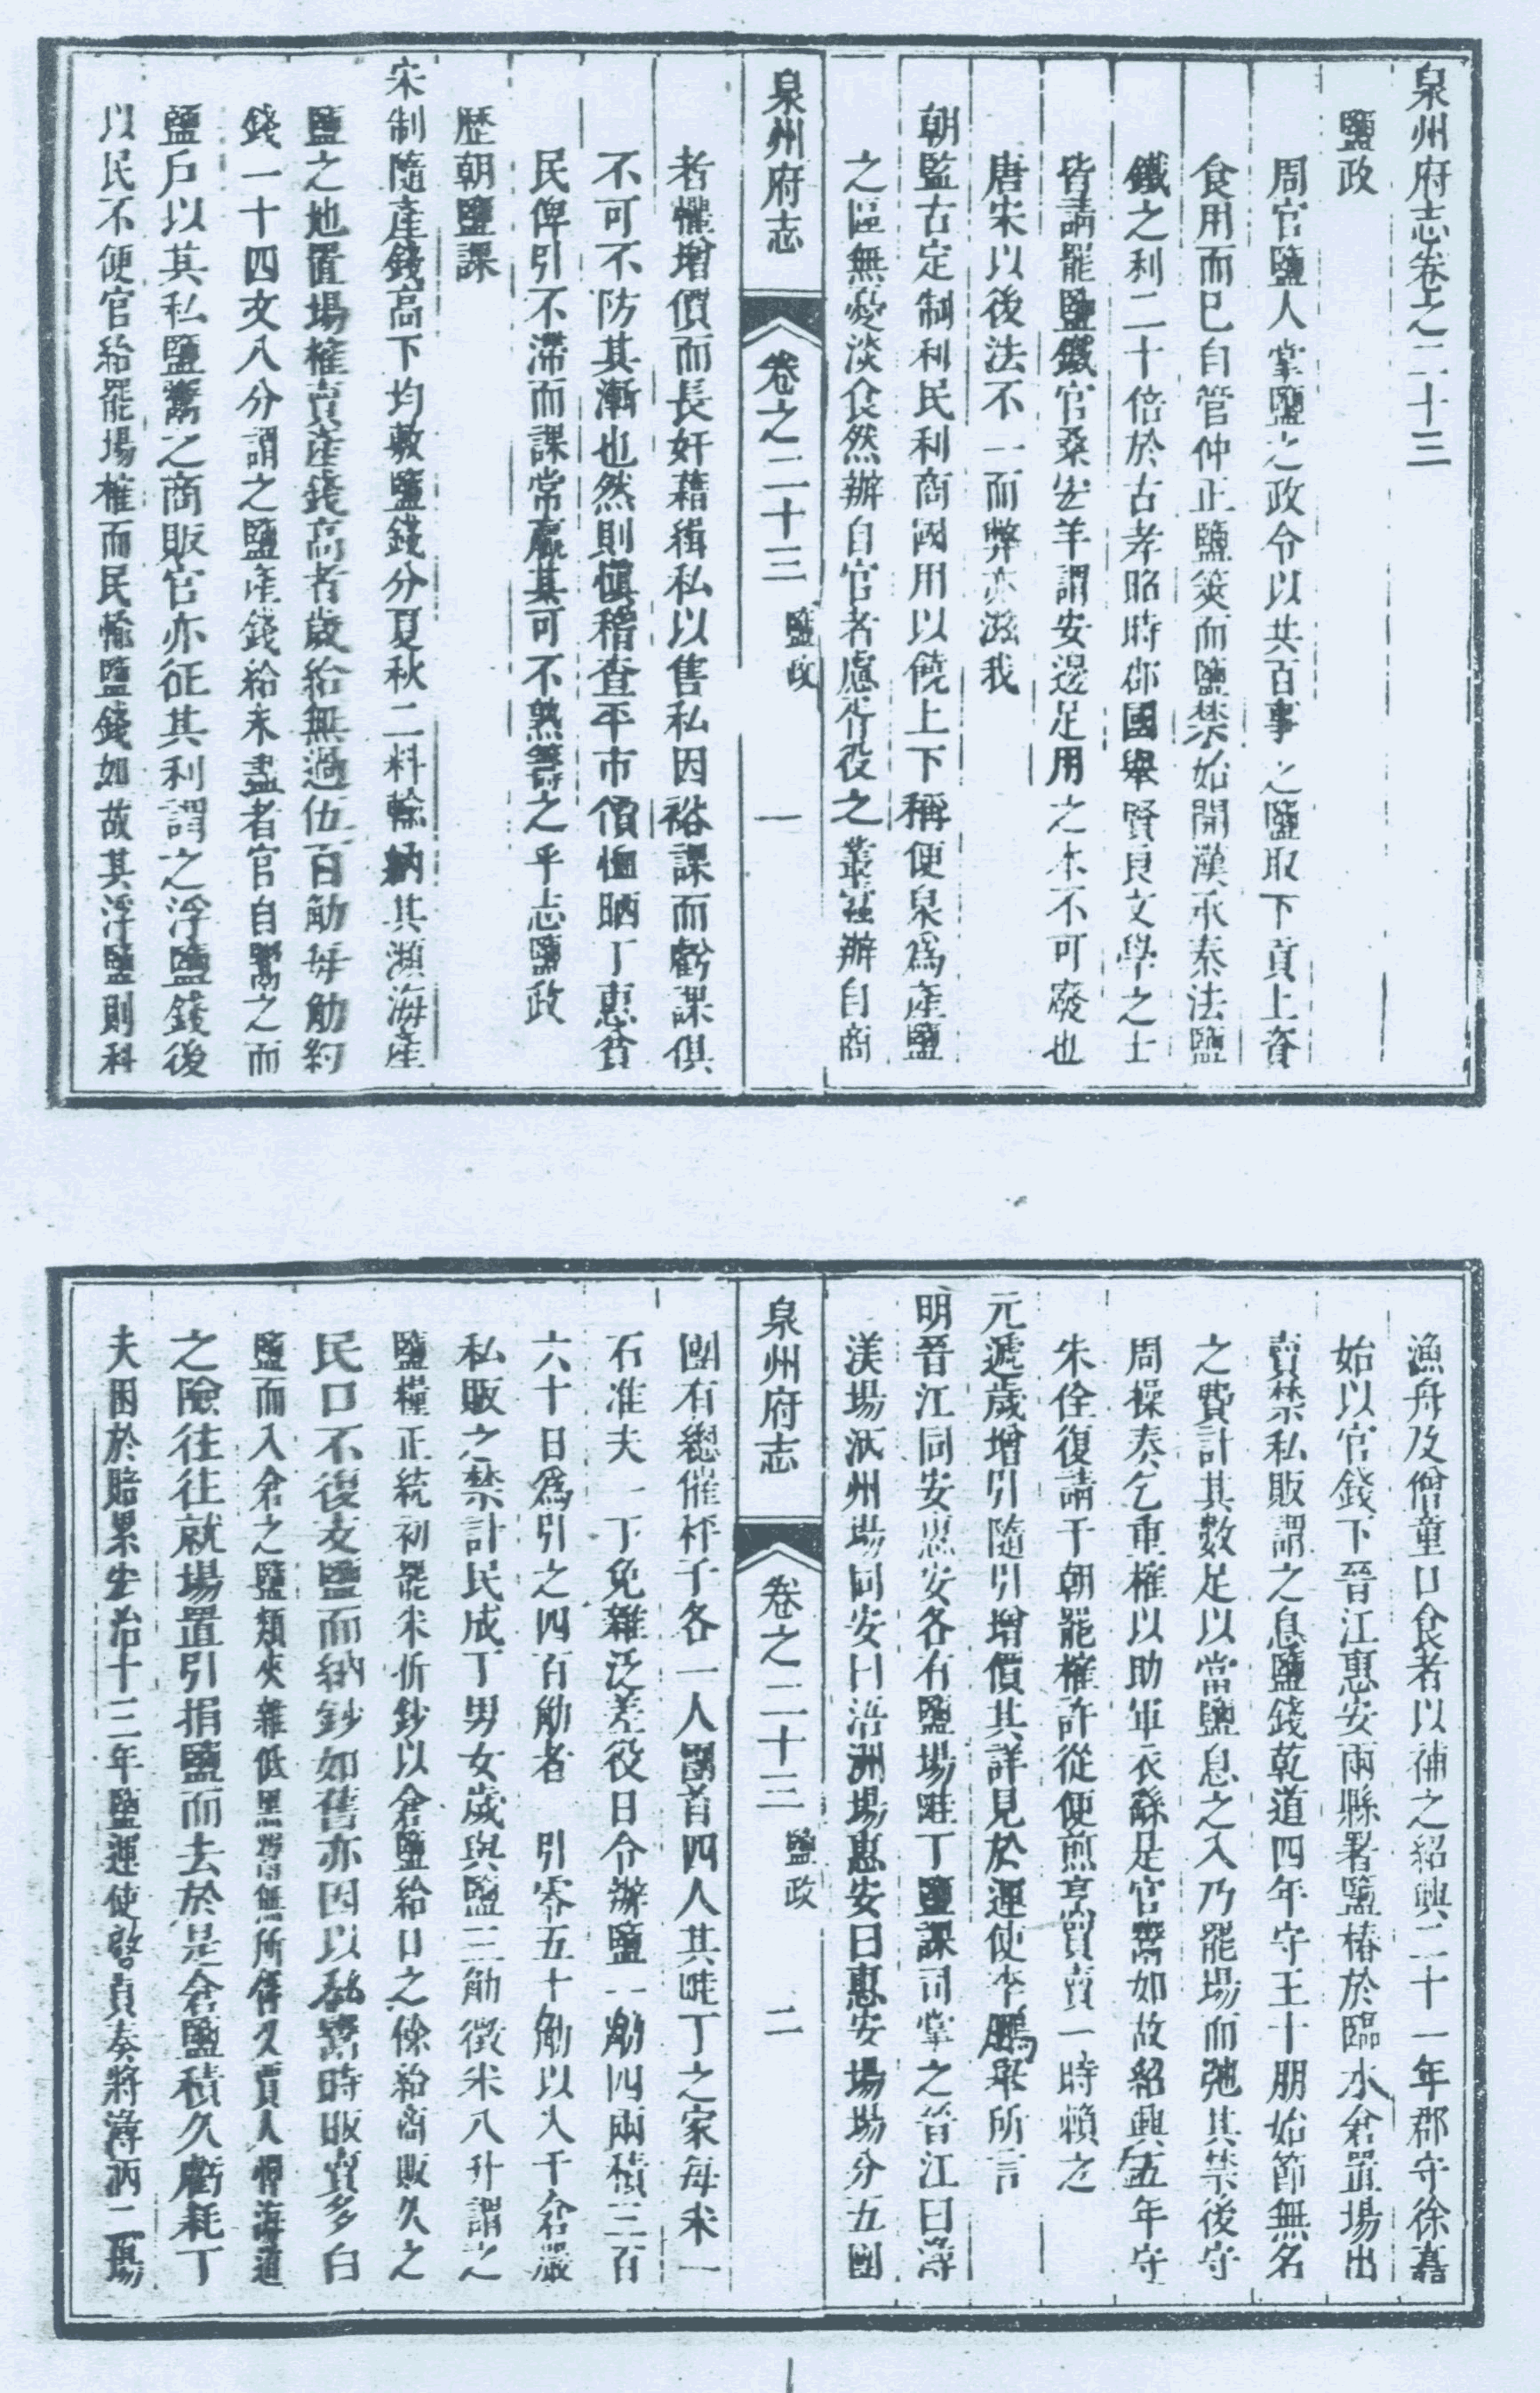 泉州府志卷之二十三
鹽政
周官鹽人掌鹽之政令以共百事之鹽取下貢上資
食用而已自管仲正鹽筴而鹽禁始開漢承秦法鹽
鐵之利二十倍於古孝昭時郡國舉賢良文學之士
皆請罷鹽鐵官桑弘羊謂安邊足用之本不可廢也
唐宋以後法不一而弊亦滋我
朝監古定制利民利商國用以饒上下稱便泉為產鹽
之區無憂淡食然辦自官者慮胥役之叢蠹辦自商
泉州府志
卷之二十三
鹽政
一
者懼增價而長奸藉緝私以售私因裕課而虧課俱
不可不防其漸也然則慎稽查平市價恤晒丁惠貧
民俾引不滯而課常贏其可不熟籌之乎志鹽政
歷朝鹽課
宋制隨產錢高下均敷鹽錢分夏秋二料輸納其瀕海產
鹽之地置場榷賣產錢高者歲給無過伍百觔每觔約
錢一十四文八分謂之鹽產錢給未盡者官自鬻之而
鹽戶以其私鹽鬻之商販官亦征其利謂之浮鹽錢後
以民不便官給罷場榷而民輸鹽錢如故其浮鹽則科
漁舟及僧童口食者以補之紹興二十一年郡守徐嚞
始以官錢下晉江惠安兩縣署鹽樁於臨水倉置場出
賣禁私販謂之息鹽錢乾道四年守王十朋始節無名
之費計其數足以當鹽息之入乃罷場而弛其禁後守
周操奏乞重榷以助軍衣繇是官鬻如故紹興五年守
朱佺復請于朝罷榷許從便煎烹買賣一時賴之
元遞歲增引隨引增價其詳見於運使李鵬舉所言
明晉江同安惠安各有鹽場畦丁鹽課司掌之晉江曰潯
渼場𣵠州場同安曰浯洲場惠安曰惠安場場分五團
泉州府志
卷之二十三
鹽政
二
團有總催秤子各一人團首四人其畦丁之家每米一
石准夫一丁免雜泛差役日令辦鹽一觔四兩積三百
六十日為引之四百觔者 引零五十觔以入于倉嚴
私販之禁計民成丁男女歲與鹽三觔徵米八升謂之
鹽糧正統初罷米折鈔以倉鹽給口之餘給商販久之
民口不復支鹽而納鈔如舊亦因以私鬻時販賣多白
鹽而入倉之鹽類夾雜低黑鬻無所售久賈人憚海道
之險往往就場置引捐鹽而去於是倉鹽積久虧耗丁
夫困於賠累弘治十三年鹽運使啓貞奏將潯𣵠二場